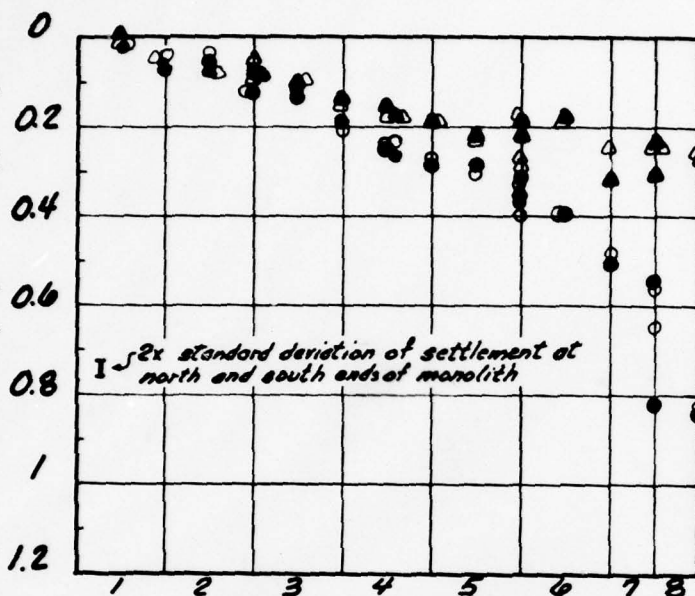 0
0.2
0.4
0.6
I 2x standard deviation of settlement at
north and south ends of monolith
0.8
1
1.2
1 2 3 4 5 6 7 8